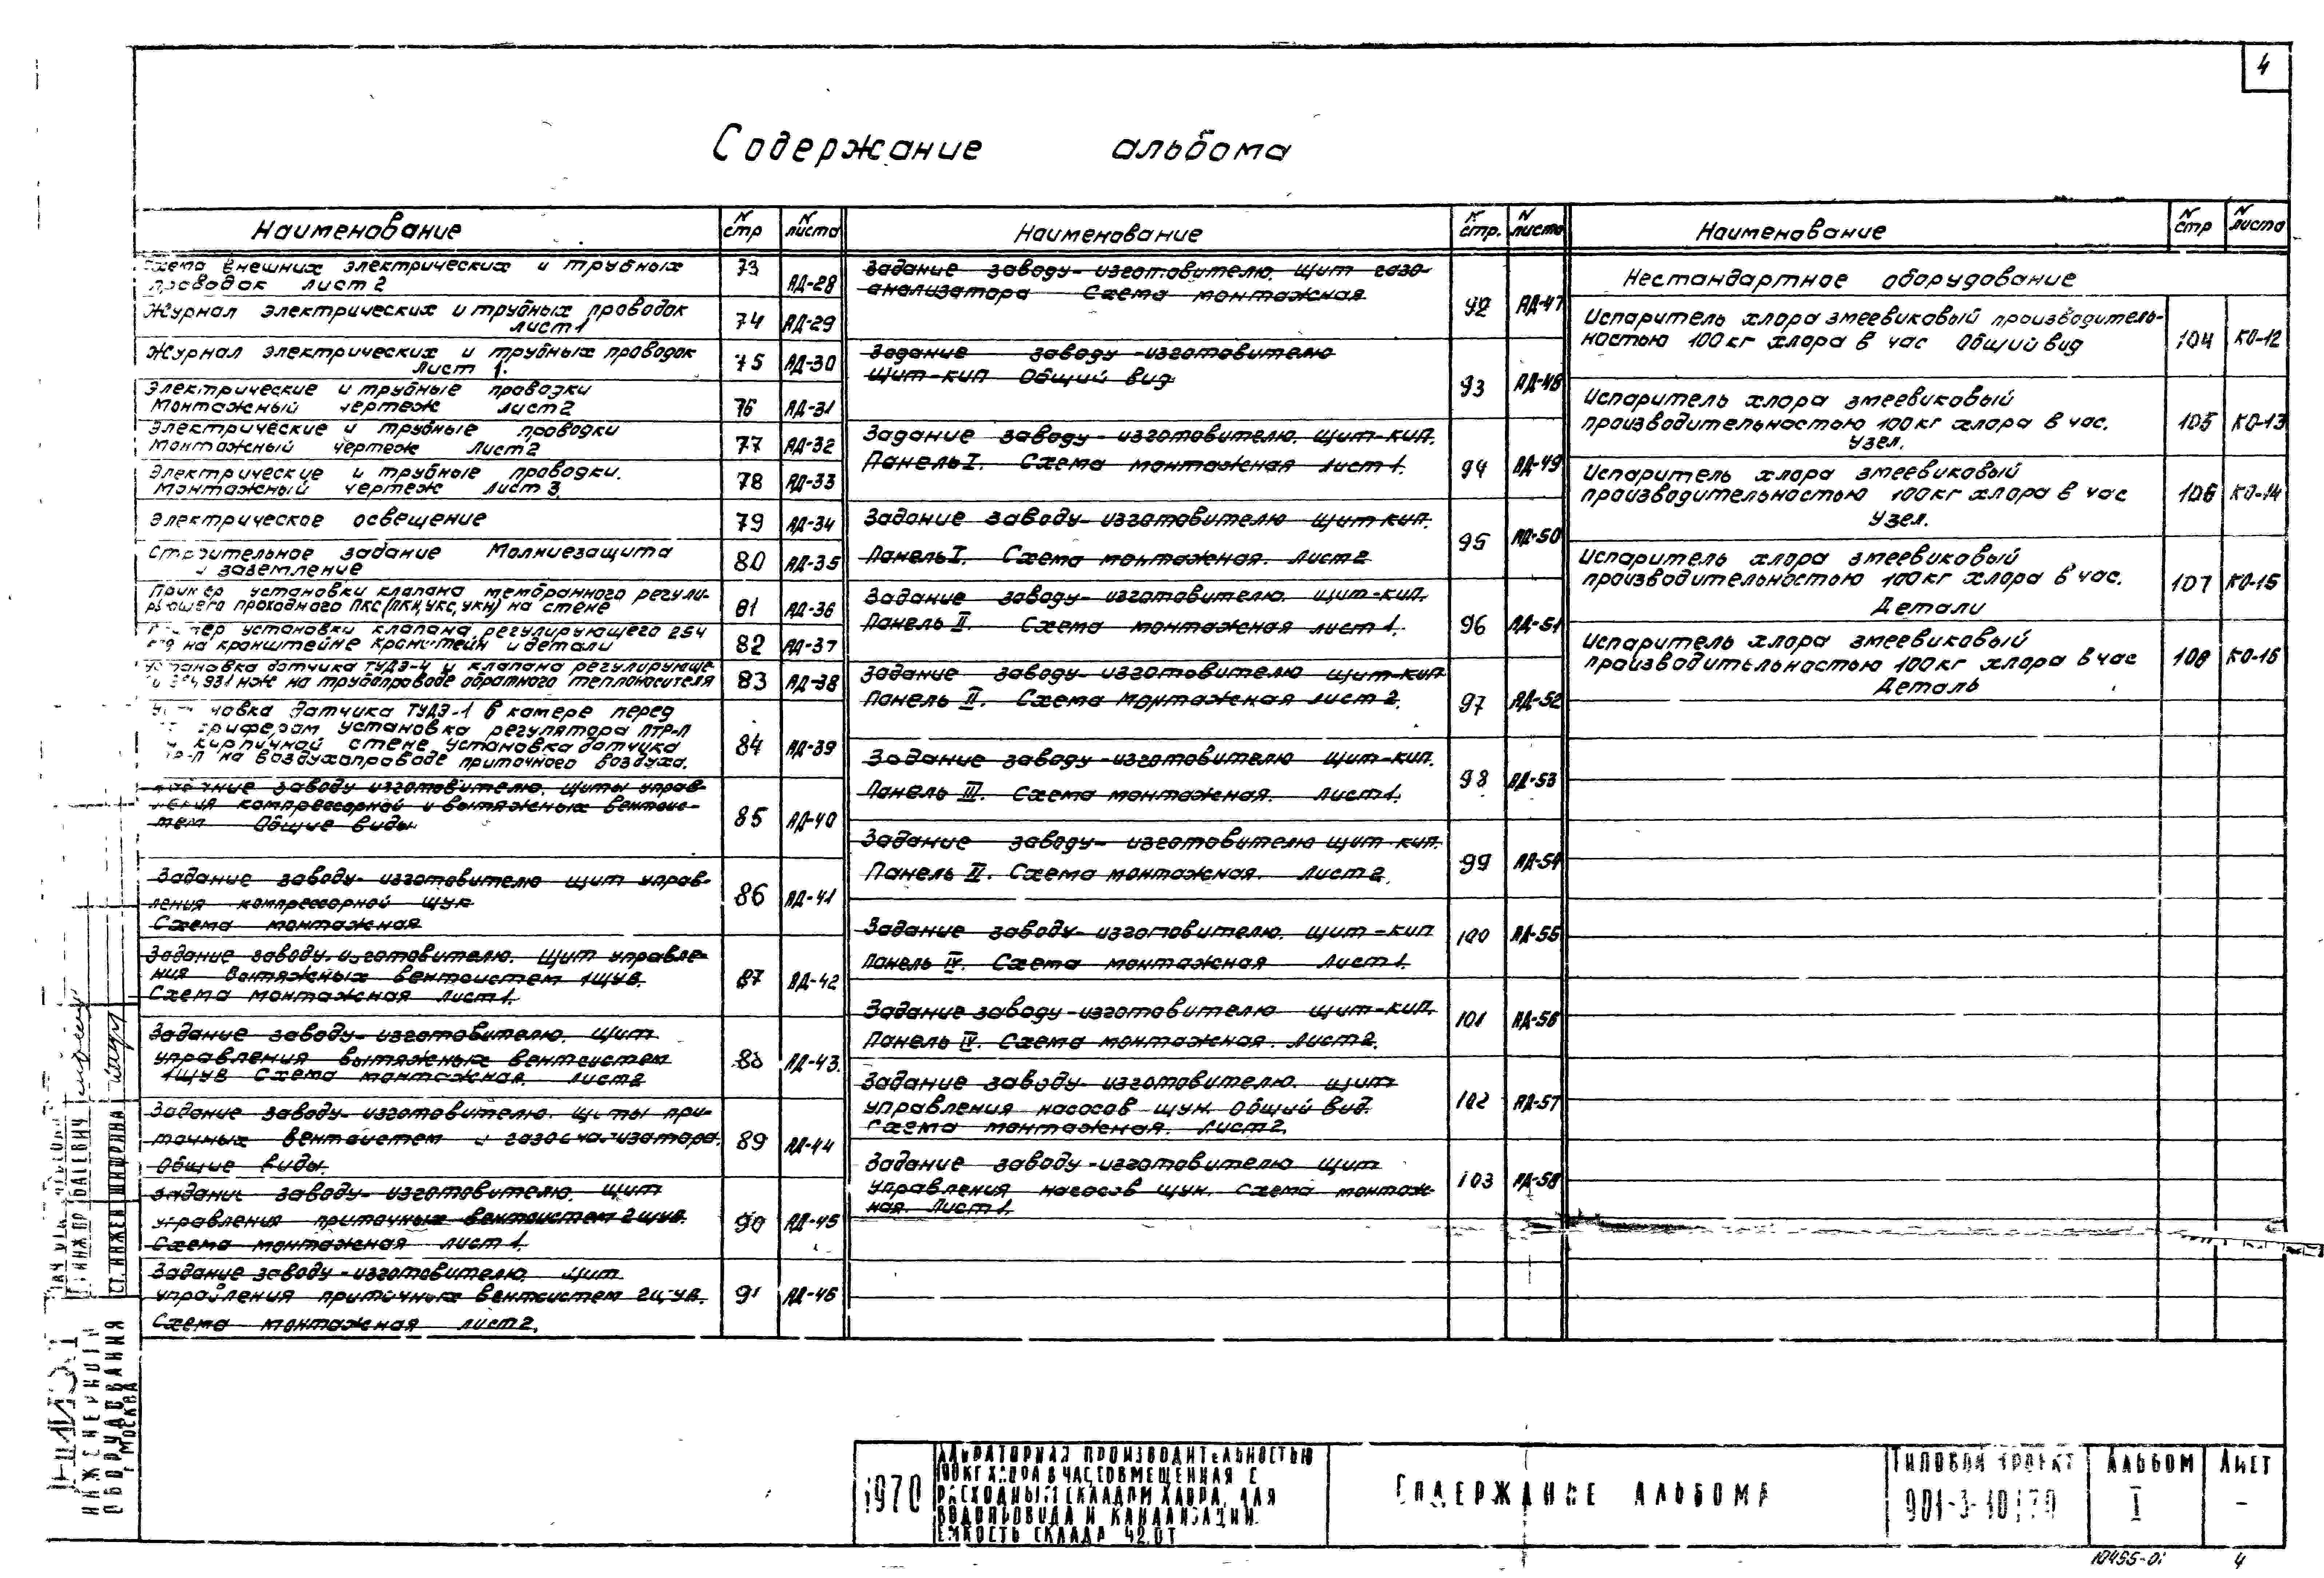 4
Содержание альбома
Наименование
N стр
N листа
внешних электрических и трубных
проводок лист 2
73
АД-28
Журнал электрических и трубных проводок
лист 1
74
АД-29
Журнал электрических и трубных проводок
Лист 1.
75
АД-30
Электрические и трубные проводки
Монтажный чертеж лист 2
76
АД-31
Электрические и трубные проводки
Монтажный чертеж Лист 2
77
АД-32
Электрические и трубные проводки.
Монтажный чертеж лист 3.
78
АД-33
Электрическое освещение
79
АД-34
Строительное задание Молниезащита
и заземление
80
АД-35
Пример установки клапана мембранного регули-
рующего проходного ПКС (ПКН, УКС, УКН) на стене
81
АД-36
установки клапана регулирующего 254
на кронштейне Кронштейн и детали
82
АД-37
Установка датчика ТУДЭ-4 и клапана регулирующе-
931 нж на трубопроводе обратного теплоносителя
83
АД-38
датчика ТУДЭ-1 в камере перед
установка регулятора ПТР-П
кирпичной стене, установка датчика
на воздухопроводе приточного воздуха.
84
АД-39
заводу изготовителю. Щиты управ-
ления компрессорной и вытяжных вентсис-
тем Общие виды
85
АД-40
Задание заводу-изготовителю щит управ-
ления компрессорной щук
Схема монтажная
86
АД-41
Задание заводу-изготовителю. Щит управле-
ния вытяжных вентсистем 1щув.
Схема монтажная Лист 1.
87
АД-42
Задание заводу-изготовителю. Щит
управления вытяжных вентсистем
1щув Схема монтажная. Лист 2
88
АД-43.
Задание заводу-изготовителю. щиты при-
точных вентсистем и газоанализатора.
Общие виды.
89
АД-44
Задание заводу-изготовителю. Щит
управления приточных вентсистем 2щув.
Схема монтажная лист 1.
90
АД-45
Задание заводу-изготовителю. щит
управления приточных вентсистем 2щув.
Схема монтажная лист 2.
91
АД-46
Наименование
N стр.
N листа
Задание заводу-изготовителю. щит газо-
анализатора Схема монтажная
92
АД-47
Задание заводу-изготовителю
Щит-кип Общий вид
93
АД-48
Задание заводу-изготовителю. щит-кип.
Панель I. Схема монтажная лист 1.
94
АД-49
Задание заводу-изготовителю щит кип.
Панель I. Схема монтажная. Лист 2
95
АД-50
Задание заводу-изготовителю. щит-кип.
Панель II. Схема монтажная лист 1.
96
АД-51
Задание заводу-изготовителю щит-кип
Панель II. Схема монтажная лист 2.
97
АД-52
Задание заводу-изготовителю щит-кип.
Панель III. Схема монтажная. лист 1.
98
АД-53
Задание заводу-изготовителю щит-кип.
Панель II. Схема монтажная. Лист 2.
99
АД-54
Задание заводу-изготовителю. щит-кип
Панель IV. Схема монтажная Лист 1.
100
АД-55
Задание заводу-изготовителю щит-кип.
Панель IV. Схема монтажная. Лист 2.
101
АД-56
Задание заводу-изготовителю. щит
управления насосов щун. Общий вид.
Схема монтажная. Лист 2.
102
АД-57
Задание заводу-изготовителю щит
управления насосов щун. Схема монтаж-
ная. Лист 1.
103
АД-58
Наименование
N стр
N листа
Нестандартное оборудование
Испаритель хлора змеевиковый производитель-
ностью 100 кг хлора в час Общий вид
104
КО-12
Испаритель хлора змеевиковый
производительностью 100 кг хлора в час.
Узел.
105
КО-13
Испаритель хлора змеевиковый
производительностью 100 кг хлора в час
Узел.
106
КО-14
Испаритель хлора змеевиковый
производительностью 100 кг хлора в час.
Детали
107
КО-15
Испаритель хлора змеевиковый
производительностью 100 кг хлора в час
Деталь
108
КО-16
СТ. ИНЖЕН ШИШКИНА
ИНЖЕНЕРНОГО
ОБОРУДОВАНИЯ
Г МОСКВА
1970
ХЛОРАТОРНАЯ ПРОИЗВОДИТЕЛЬНОСТЬЮ
100 КГ ХЛОРА В ЧАС СОВМЕЩЕННАЯ С
РАСХОДНЫМ СКЛАДОМ ХЛОРА ДЛЯ
ВОДОПРОВОДА И КАНАЛИЗАЦИИ.
ЕМКОСТЬ СКЛАДА 42.0Т
СОДЕРЖАНИЕ АЛЬБОМА
ТИПОВОЙ ПРОЕКТ
901-3-10/70
АЛЬБОМ
I
ЛИСТ
-
10455-01
4